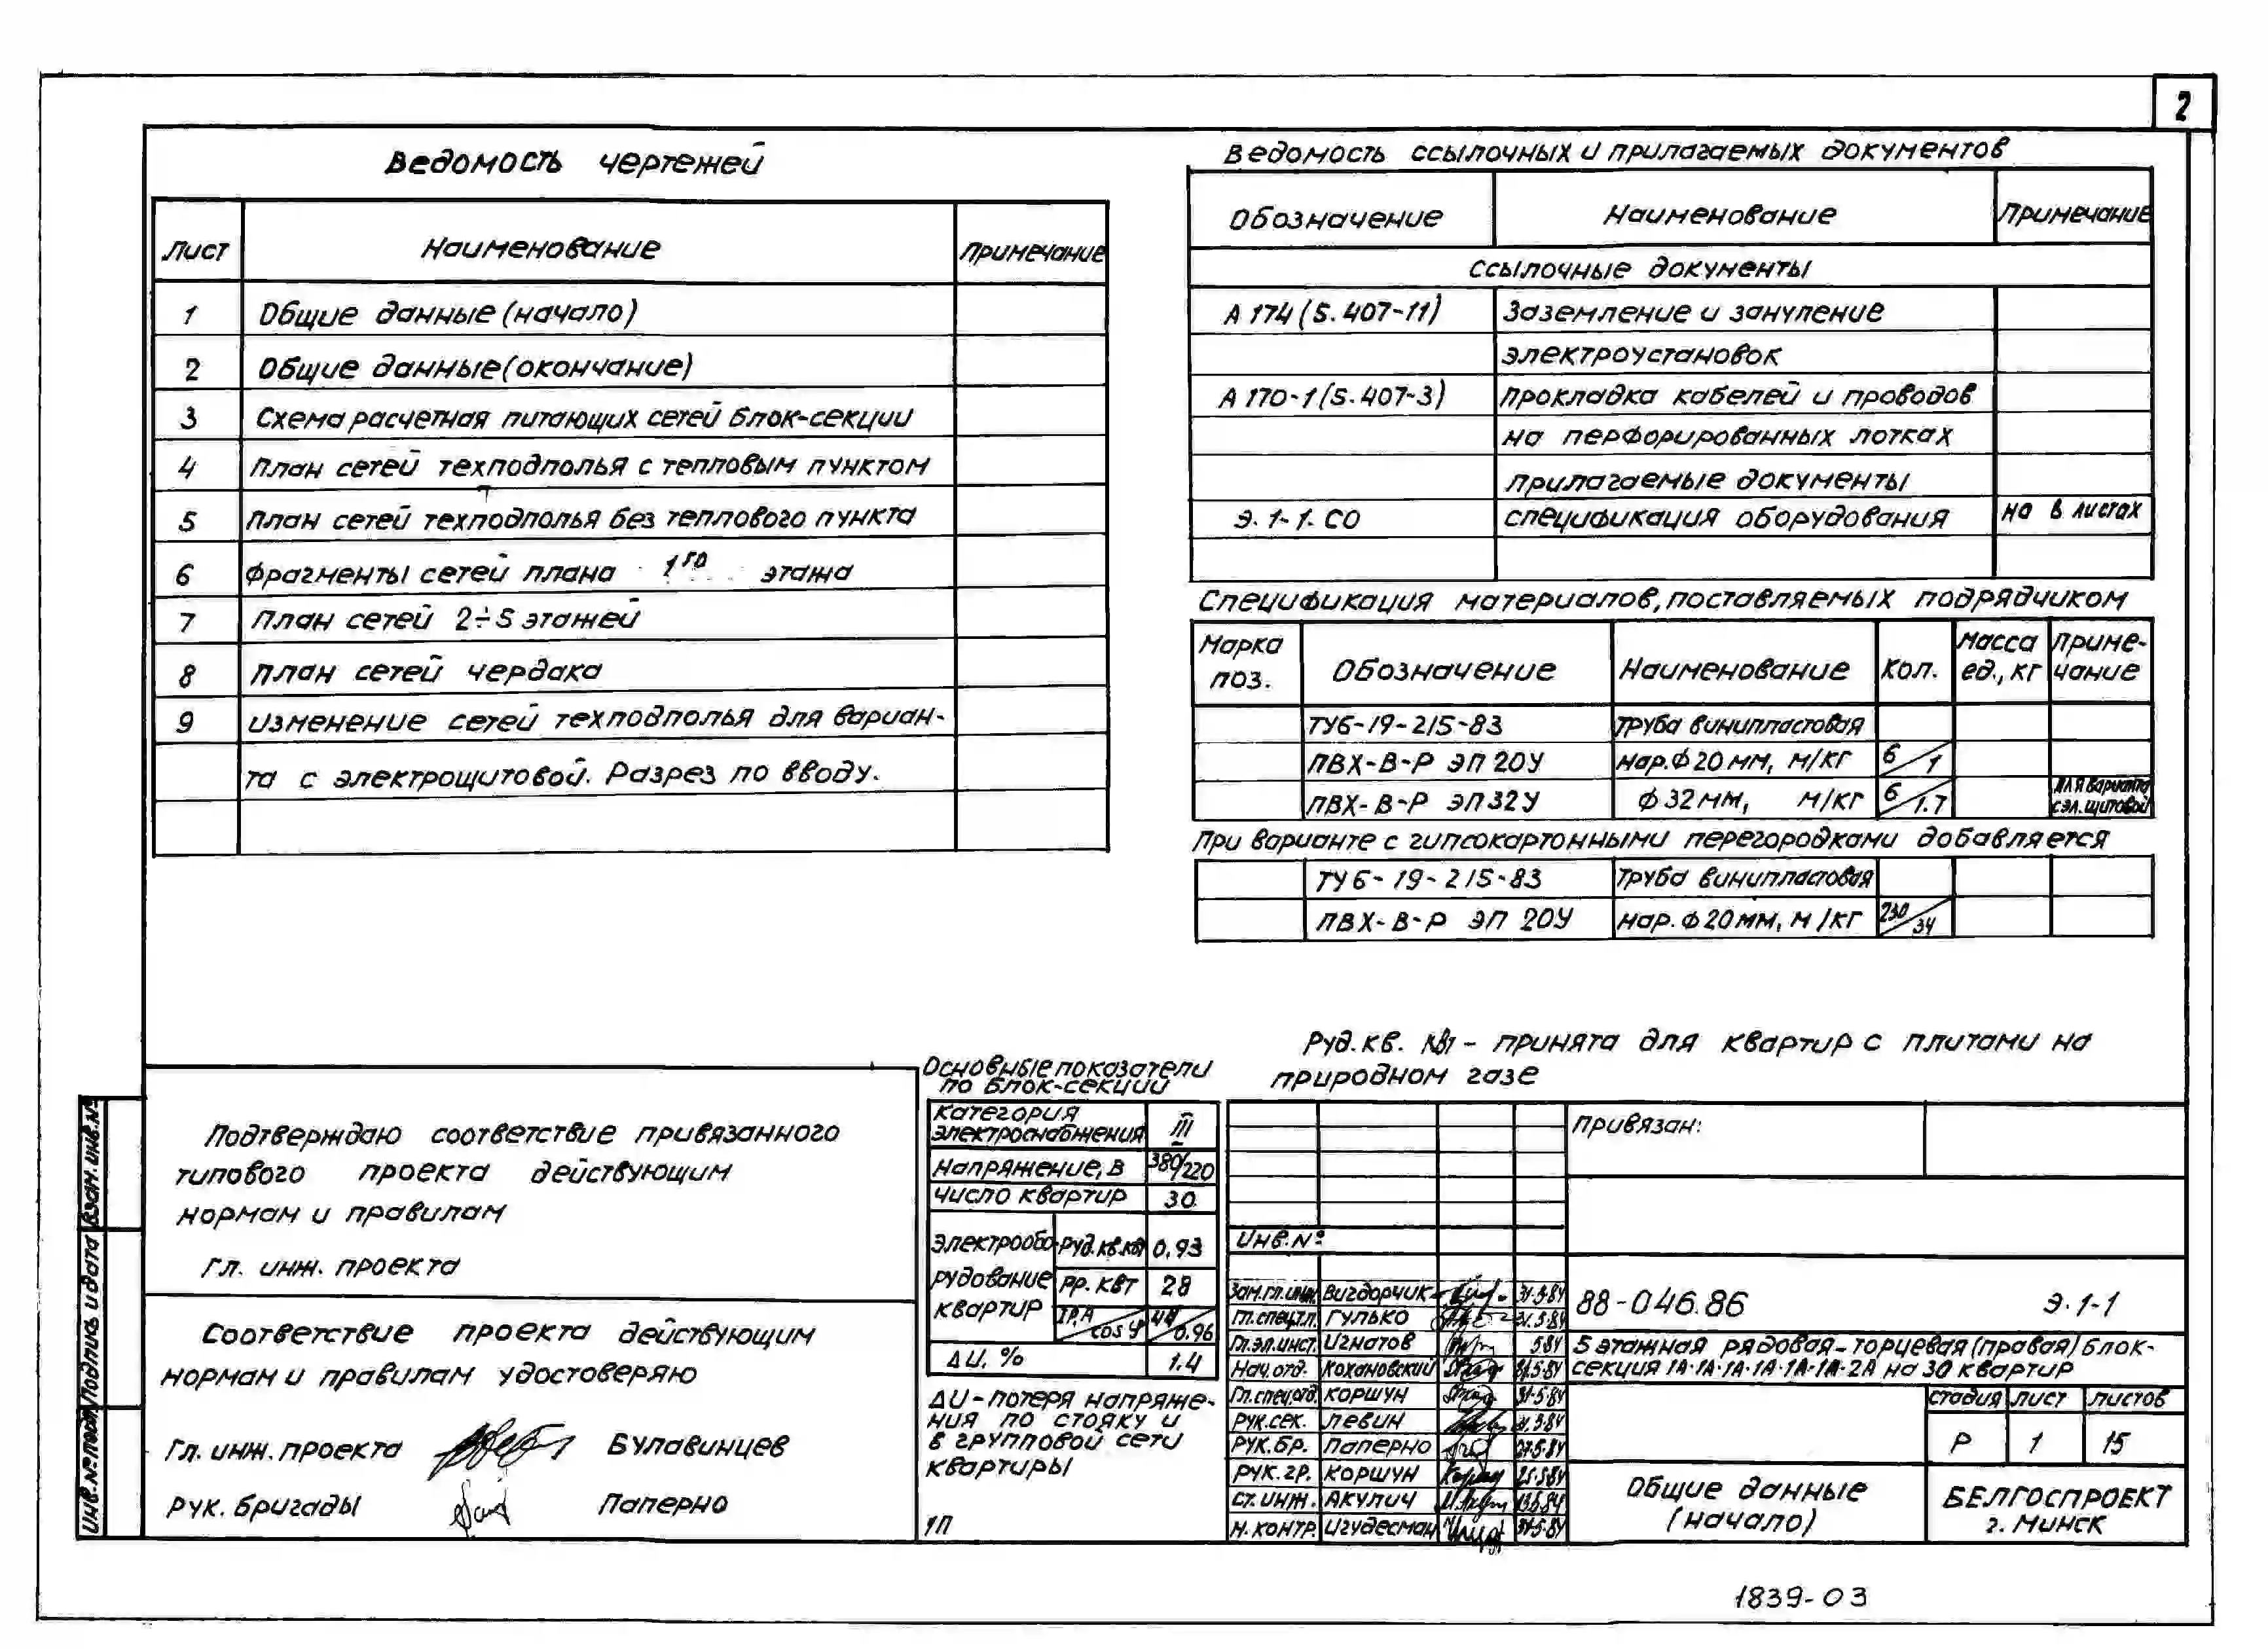 2
Ведомость чертежей
Лист Наименование Примечание
1 Общие данные (начало)
2 Общие данные (окончание)
3 Схема расчетная питающих сетей блок-секции
4 План сетей техподполья с тепловым пунктом
5 План сетей техподполья без теплового пункта
6 Фрагменты сетей плана 1го этажа
7 План сетей 2÷5 этажей
8 План сетей чердака
9 Изменение сетей техподполья для вариан-
та с электрощитовой. Разрез по вводу.
Ведомость ссылочных и прилагаемых документов
Обозначение Наименование Примечание
Ссылочные документы
А 174 (5.407-11) Заземление и зануление
электроустановок
А 170-1 (5.407-3) Прокладка кабелей и проводов
на перфорированных лотках
прилагаемые документы
Э.1-1.СО спецификация оборудования на в листах
Спецификация материалов, поставляемых подрядчиком
Марка поз. Обозначение Наименование Кол. Масса ед., кг Приме-чание
ТУ6-19-215-83 Труба винипластовая
ПВХ-В-Р ЭП 20У нар. ф 20 мм, м/кг 6/1
ПВХ-В-Р ЭП 32У ф 32 мм, м/кг 6/1.7 для варианта с эл. щитовой
При варианте с гипсокартонными перегородками добавляется
ТУ6-19-215-83 Труба винипластовая
ПВХ-В-Р ЭП 20У нар. ф 20 мм, м/кг 230/34
Руд.кв. кВт - принята для квартир с плитами на
природном газе
Подтверждаю соответствие привязанного
типового проекта действующим
нормам и правилам
Гл. инж. проекта
Соответствие проекта действующим
нормам и правилам удостоверяю
Гл. инж. проекта Булавинцев
Рук. бригады Паперно
Основные показатели
по блок-секции
Категория электроснабжения III
Напряжение, В 380/220
Число квартир 30
Электрообо-рудование квартир Руд.кв.кВт 0.93
Рр. кВт 28
Iр,А/cos φ 44/0.96
ΔU, % 1.4
ΔU - потеря напряже-
ния по стояку и
в групповой сети
квартиры
1П
Привязан:
Инв. №
Зам.гл.инж. Вигдорчик 31.5.84
Гл.спец.тл. Гулько 31.5.84
Гл.эл.инст. Игнатов 5.84
Нач.отд. Кохановский 31.5.84
Гл.спец.отд. Коршун 31.5.84
Рук.сек. Левин 31.5.84
Рук.бр. Паперно 27.5.84
Рук.гр. Коршун 25.5.84
Ст.инж. Акулич
Н.контр. Игудесман 31.5.84
88-046.86 Э.1-1
5 этажная рядовая-торцевая (правая) блок-
секция 1А-1А-1А-1А-1А-1А-2А на 30 квартир
Стадия Лист Листов
Р 1 15
Общие данные
(начало)
БЕЛГОСПРОЕКТ
г. Минск
Взам. инв. №
Подпись и дата
Инв. № подл.
1839-03